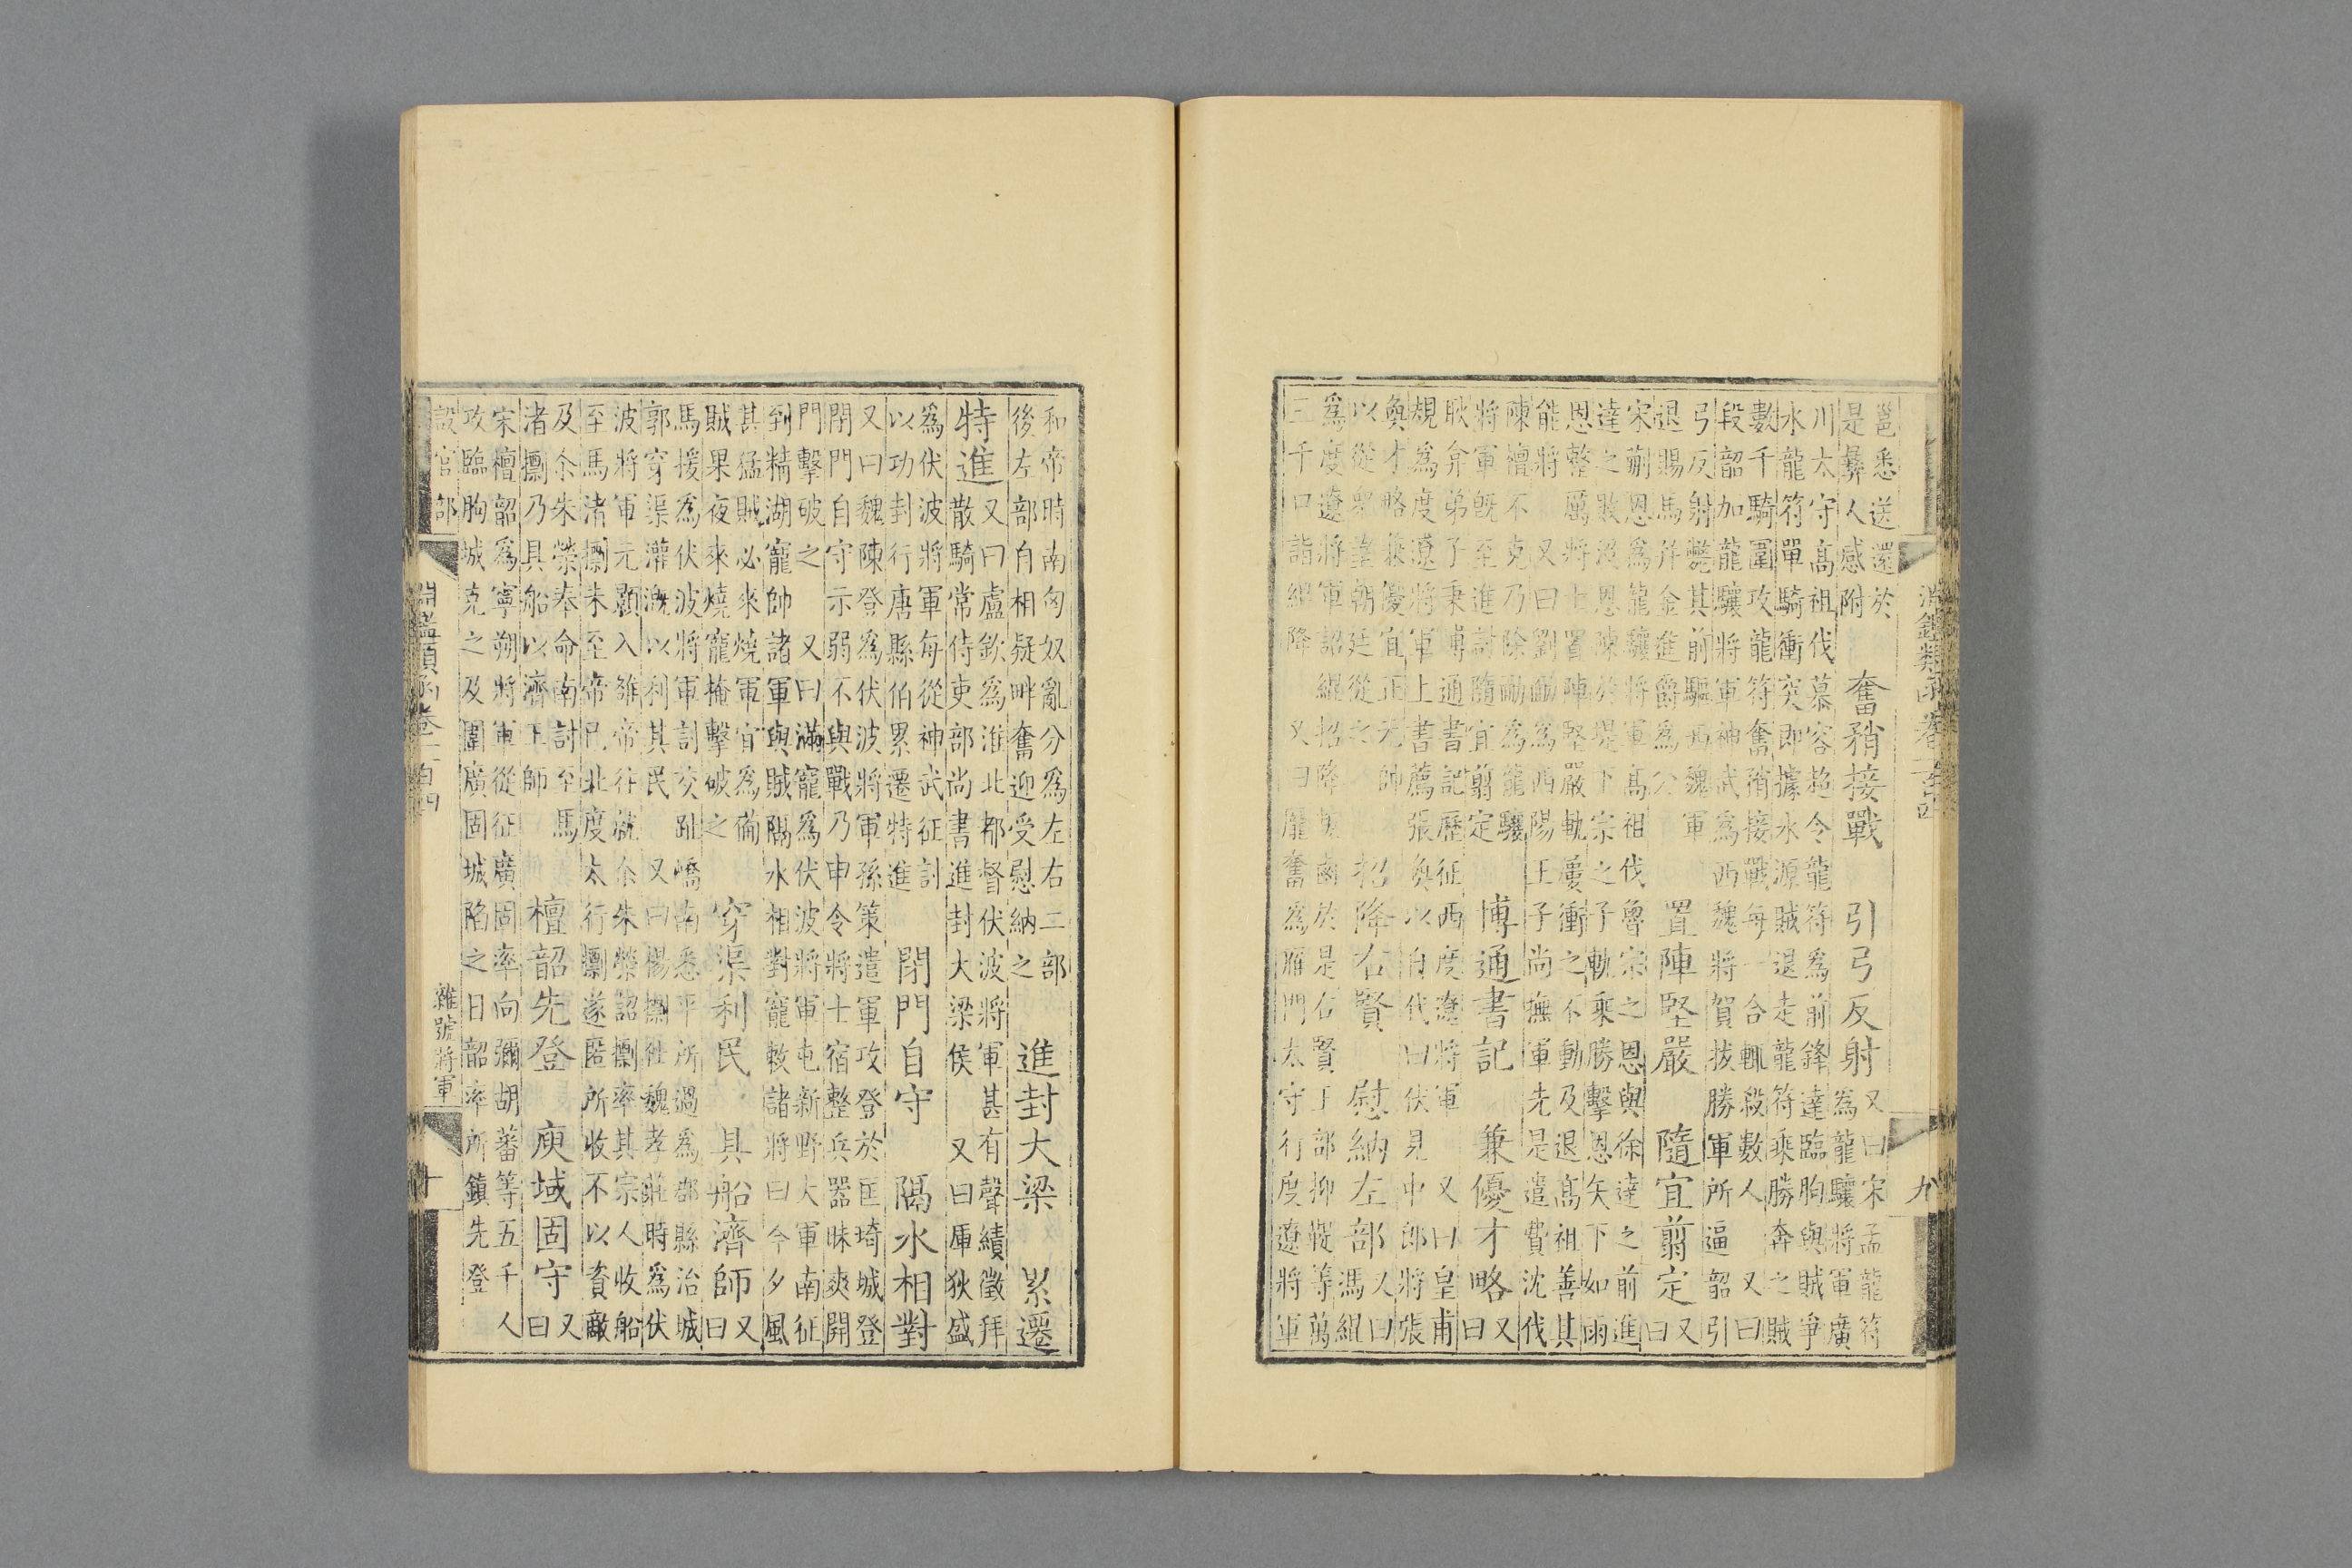 淵鑑類函卷一百四
九
邕悉送還於
是彝人感附
奮矟接戰　引弓反射
又曰宋孟龍符
爲龍驤將軍廣
川太守高祖伐慕容超令龍符爲前鋒達臨朐與賊爭
水龍符單騎衝突即據水源賊退走龍符乘勝奔之賊
數千騎圍攻龍符奮矟接戰每一合輒殺數人　又曰
段韶加龍驤將軍神武爲西魏將賀拔勝軍所逼韶引
弓反射斃其前驅西魏軍
退賜馬幷金進爵爲公
置陣堅嚴　隨宜翦定
又曰
宋蒯恩爲龍驤將軍高祖伐魯宗之恩與徐達之前進
達之敗沒恩陳於堤下宗之子軌乘勝擊恩矢下如雨
恩整厲將士置陣堅嚴軌屢衝之不動及退高祖善其
能將　又曰劉勔爲西陽王子尚撫軍先是遣費沈伐
陳檀不克乃除勔爲龍驤
將軍既至進討隨宜翦定
博通書記　兼優才略
又曰
耿弇弟子秉博通書記歷征西度遼將軍　又曰皇甫
規爲度遼將軍上書薦張奐以自代曰伏見中郎將張
奐才略兼優宜正元帥
以從衆望朝廷從之
招降右賢　慰納左部
又曰
馮緄
爲度遼將軍詔緄招降鹵於是右賢王部抑鞮等萬
三千口詣緄降　又曰龐奮爲雁門太守行度遼將軍
和帝時南匈奴亂分爲左右二部
後左部自相疑畔奮迎受慰納之
進封大梁　累遷
特進
又曰盧欽爲淮北都督伏波將軍甚有聲績徵拜
散騎常侍吏部尚書進封大梁侯　又曰厙狄盛
爲伏波將軍每從神武征討
以功封行唐縣伯累遷特進
閉門自守　隔水相對
又曰魏陳登爲伏波將軍孫策遣軍攻登於匡琦城登
閉門自守示弱不與戰乃申令將士宿整兵器昧爽開
門擊破之　又曰滿寵爲伏波將軍屯新野大軍南征
到精湖寵帥諸軍與賊隔水相對寵敕諸將曰今夕風
甚猛賊必來燒軍宜爲備
賊果夜來燒寵掩擊破之
穿渠利民　具船濟師
又曰
馬援爲伏波將軍討交趾嶠南悉平所過爲郡縣治城
郭穿渠灌溉以利其民　又曰楊㩉仕魏孝莊時爲伏
波將軍元顥入雒帝往就尒朱榮詔㩉率其宗人收船
至馬渚㩉未至帝已北度太行㩉遂匿所收不以資敵
及尒朱榮奉命南討至馬
渚㩉乃具船以濟王師
檀韶先登　庾域固守
又曰
宋檀韶爲寧朔將軍從征廣固率向彌胡蕃等五千人
攻臨朐城克之及圍廣固城陷之日韶率所鎮先登
設官部
淵鑑類函卷一百四
雜號將軍
十